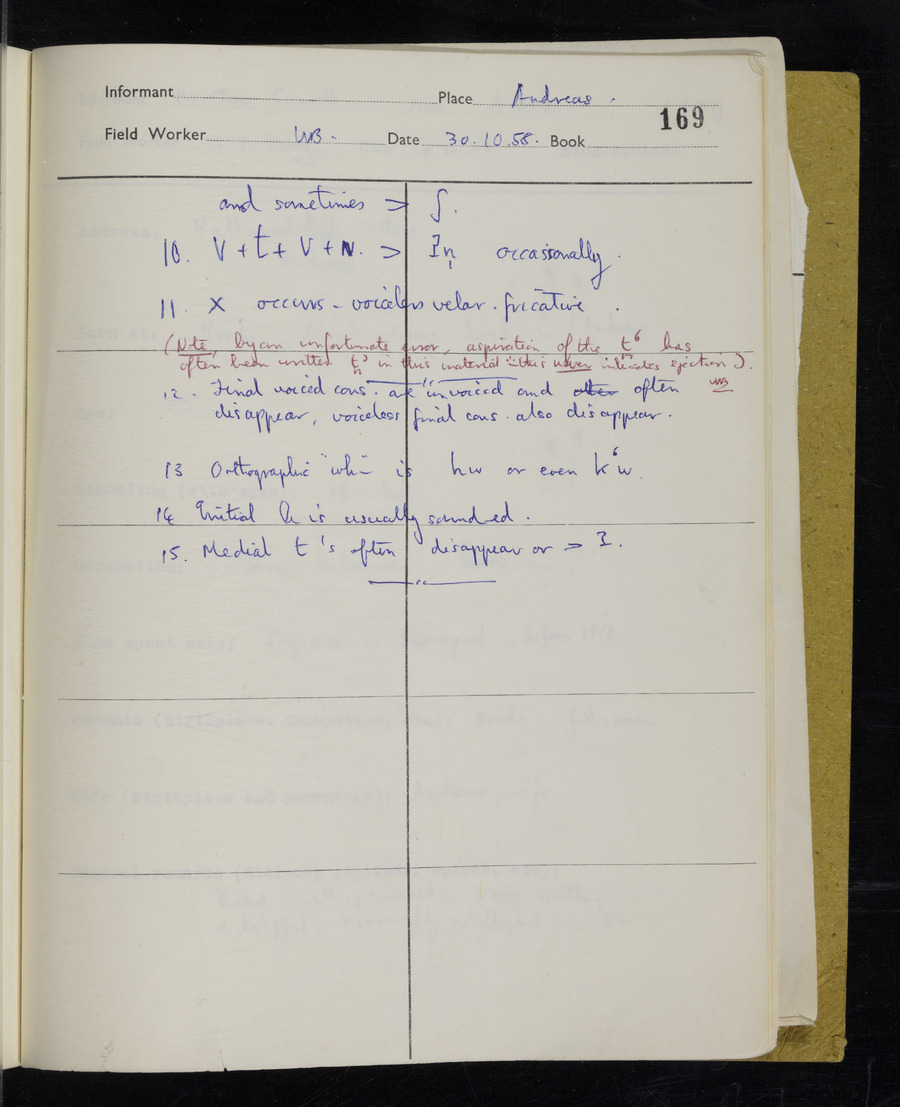 Informant Place Andreas.
169
Field Worker WB. Date 30.10.58. Book
and sometimes > ʃ.
10. V + t + V + N. > ɪn̩ occassionally.
11. X occurs - voiceless velar fricative.
(Note, by an unfortunate error, aspiration of the tʻ has
often been written t' in this material this never indicates ejection).
WB
12. Final voiced cons. are "unvoiced and often
disappear, voiceless final cons. also disappear.
13 Orthographic "wh- is hw or even kʻw.
14 Initial h is usually sounded.
15. Medial t's often disappear or > ɪ.